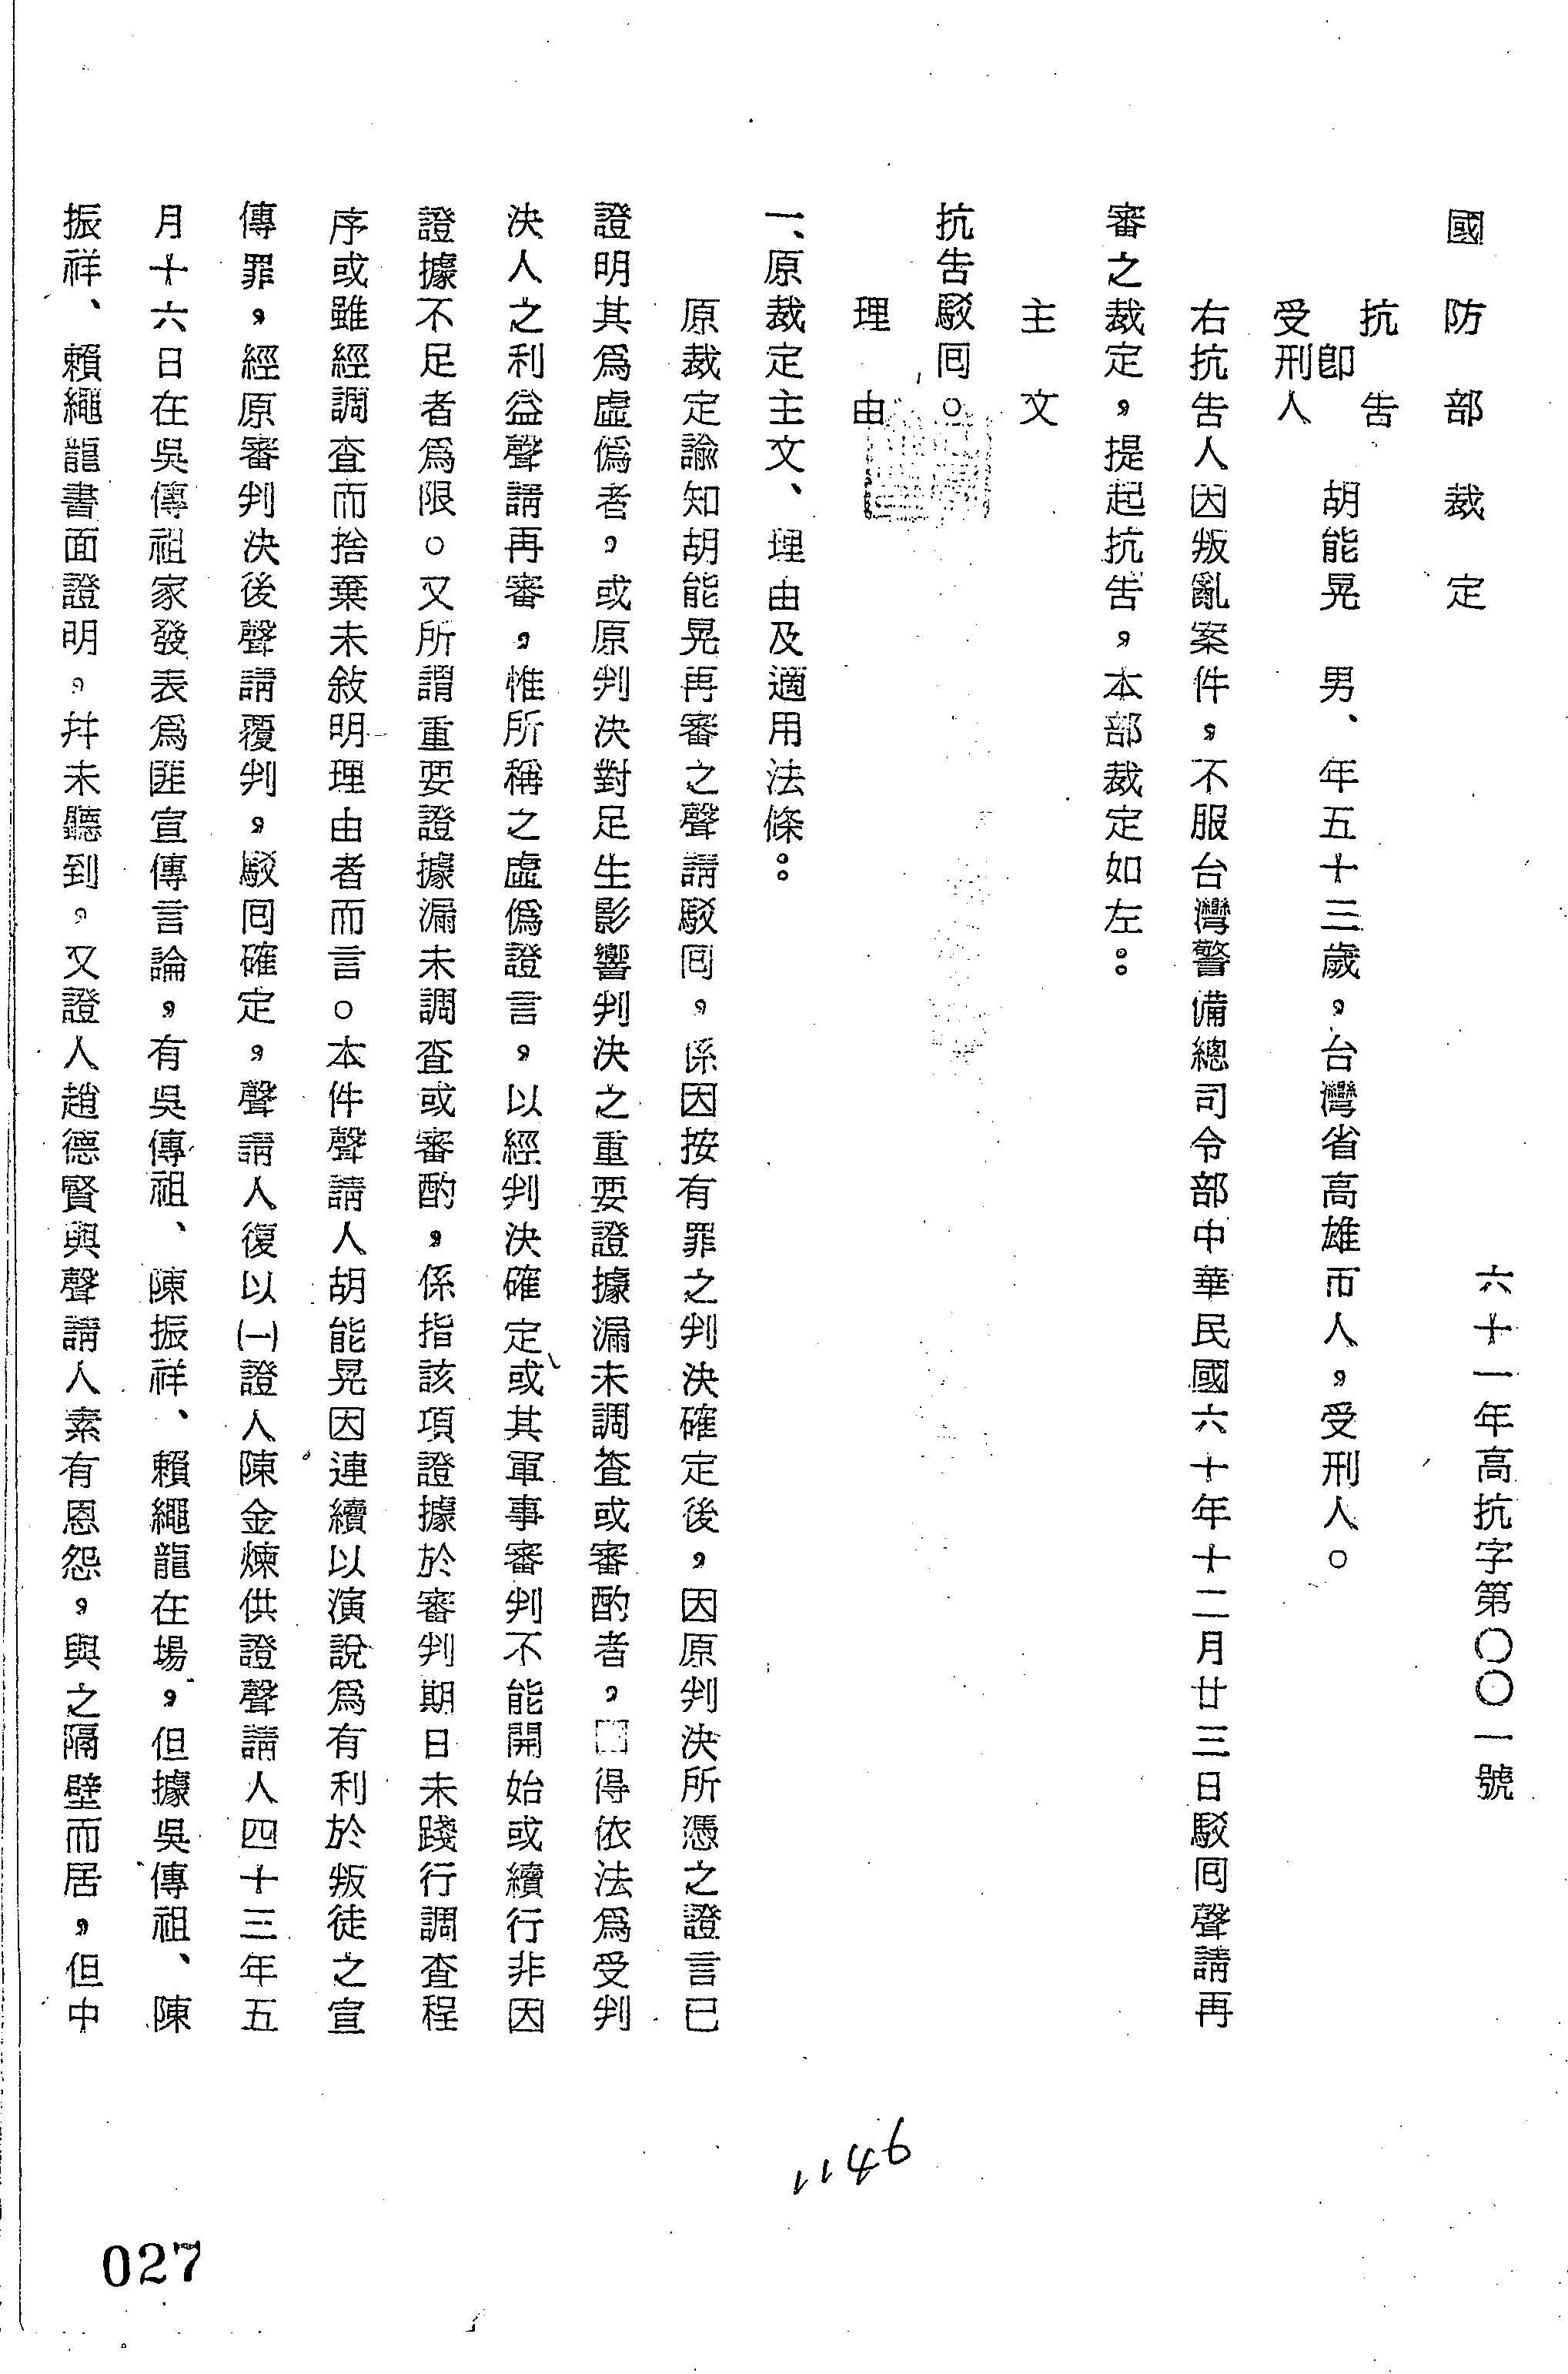 六十一年高抗字第〇〇一號
國防部裁定
抗告
即
受刑人
胡能晃 男、年五十三歲，台灣省高雄市人，受刑人。
右抗告人因叛亂案件，不服台灣警備總司令部中華民國六十年十二月廿三日駁回聲請再
審之裁定，提起抗告，本部裁定如左：
主文
抗告駁回。
理由
一、原裁定主文、理由及適用法條：
原裁定諭知胡能晃再審之聲請駁回，係因按有罪之判決確定後，因原判決所憑之證言已
證明其為虛偽者，或原判決對足生影響判決之重要證據漏未調查或審酌者，得依法為受判
決人之利益聲請再審，惟所稱之虛偽證言，以經判決確定或其軍事審判不能開始或續行非因
證據不足者為限。又所謂重要證據漏未調查或審酌，係指該項證據於審判期日未踐行調查程
序或雖經調查而捨棄未敘明理由者而言。本件聲請人胡能晃因連續以演說為有利於叛徒之宣
傳罪，經原審判決後聲請覆判，駁回確定，聲請人復以㈠證人陳金煉供證聲請人四十三年五
月十六日在吳傳祖家發表為匪宣傳言論，有吳傳祖、陳振祥、賴繩龍在場，但據吳傳祖、陳
振祥、賴繩龍書面證明，并未聽到，又證人趙德賢與聲請人素有恩怨，與之隔壁而居，但中
1146
027